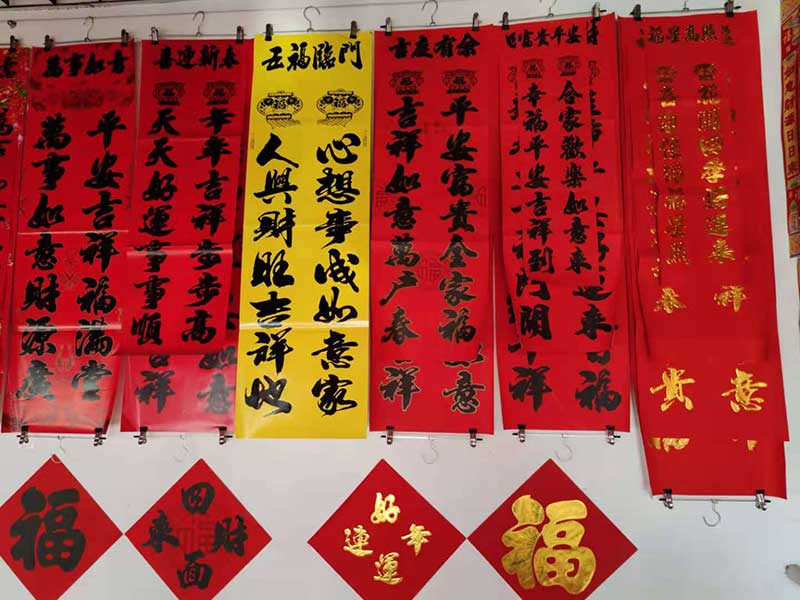 萬事如意
平安吉祥福滿堂
萬事如意財源廣
喜迎新春
年年吉祥步步高
天天好運事事順
意
吉祥
五福臨門
心想事成如意家
人興財旺吉祥地
吉慶有余
平安富貴全家福
吉祥如意萬戶春
意
祥
富貴平安
合家歡樂如意來
幸福平安吉祥到
來福
門開吉祥
福星高照
祥
春
意
貴
福
四面財來
好運連年
福